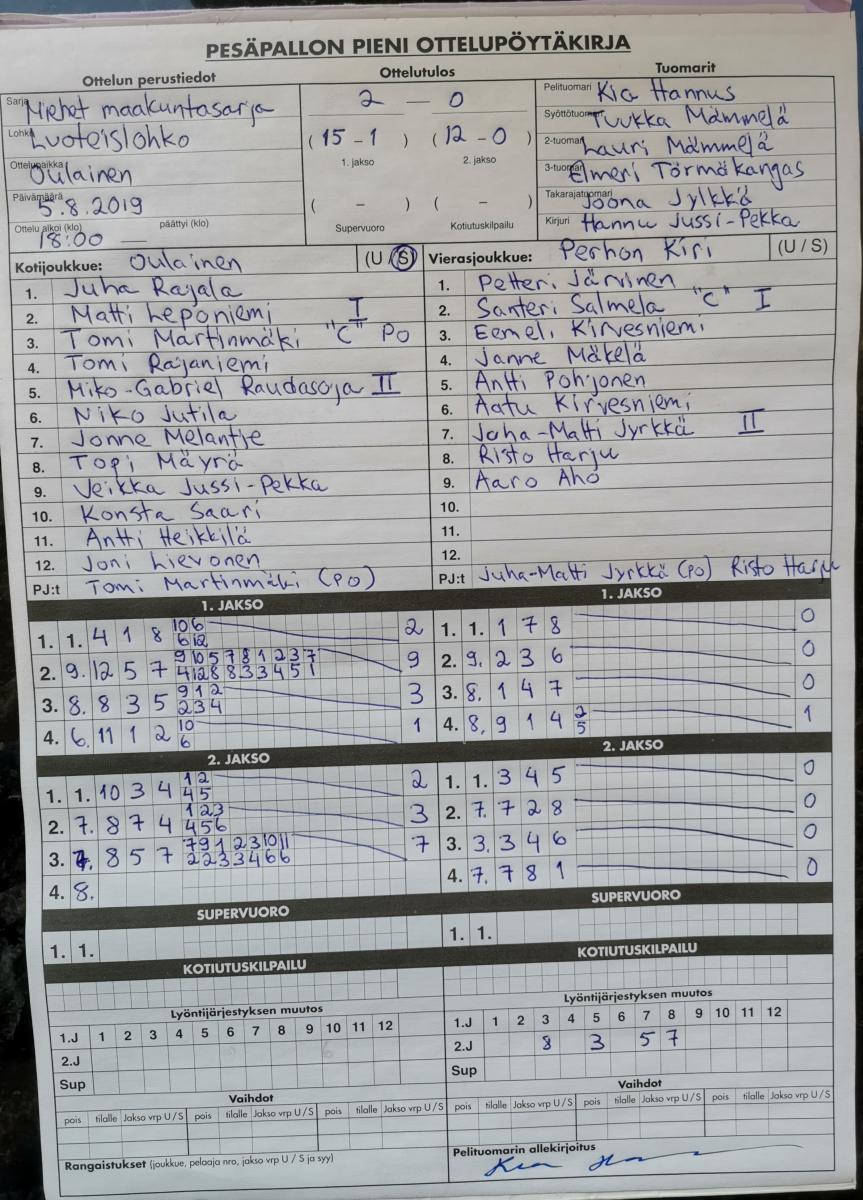 PESÄPALLON PIENI OTTELUPÖYTÄKIRJA
Ottelun perustiedot
Ottelutulos
Tuomarit
Sarja Miehet maakuntasarja
Lohko Luoteislohko
Ottelupaikka Oulainen
Päivämäärä 5.8.2019
Ottelu alkoi (klo) 18:00 — päättyi (klo)
2 — 0
( 15 - 1 ) ( 12 - 0 )
1. jakso 2. jakso
( - ) ( - )
Supervuoro Kotiutuskilpailu
Pelituomari Kia Hannus
Syöttötuomari Tuukka Mämmelä
2-tuomari Lauri Mämmelä
3-tuomari Elmeri Törmäkangas
Takarajatuomari Joona Jylkkä
Kirjuri Hannu Jussi-Pekka
Kotijoukkue: Oulainen (U / S)
1. Juha Rajala
2. Matti Leponiemi I
3. Tomi Martinmäki "C" PO
4. Tomi Rajaniemi
5. Miko-Gabriel Raudasoja II
6. Niko Jutila
7. Jonne Melantje
8. Topi Mäyrä
9. Veikka Jussi-Pekka
10. Konsta Saari
11. Antti Heikkilä
12. Joni Lievonen
PJ:t Tomi Martinmäki (PO)
Vierasjoukkue: Perhon Kiri (U / S)
1. Petteri Järvinen
2. Santeri Salmela "C" I
3. Eemeli Kirvesniemi
4. Janne Mäkelä
5. Antti Pohjonen
6. Aatu Kirvesniemi
7. Juha-Matti Jyrkkä II
8. Risto Harju
9. Aaro Aho
10.
11.
12.
PJ:t Juha-Matti Jyrkkä (PO) Risto Harju
1. JAKSO
1. 1. 4 1 8 10 6 2
6 12
2. 9. 12 5 7 9 10 5 7 8 1 2 3 7 9
4 12 8 8 3 3 4 5 1
3. 8. 8 3 5 9 1 2 3
2 3 4
4. 6. 11 1 2 10 1
6
2. JAKSO
1. 1. 10 3 4 1 2 2
4 5
2. 7. 8 7 4 1 2 3 3
4 5 6
3. 7. 8 5 7 7 9 1 2 3 10 11 7
2 2 3 3 4 6 6
4. 8.
SUPERVUORO
1. 1.
KOTIUTUSKILPAILU
Lyöntijärjestyksen muutos
1.J 1 2 3 4 5 6 7 8 9 10 11 12
2.J
Sup
Vaihdot
pois tilalle Jakso vrp U/S pois tilalle Jakso vrp U/S pois tilalle Jakso vrp U/S
Rangaistukset (joukkue, pelaaja nro, jakso vrp U / S ja syy)
1. JAKSO
1. 1. 1 7 8 0
2. 9. 2 3 6 0
3. 8. 1 4 7 0
4. 8. 9 1 4 2 1
5
2. JAKSO
1. 1. 3 4 5 0
2. 7. 7 2 8 0
3. 3. 3 4 6 0
4. 7. 7 8 1 0
SUPERVUORO
1. 1.
KOTIUTUSKILPAILU
Lyöntijärjestyksen muutos
1.J 1 2 3 4 5 6 7 8 9 10 11 12
2.J 8 3 5 7
Sup
Vaihdot
pois tilalle Jakso vrp U/S pois tilalle Jakso vrp U/S pois tilalle Jakso vrp U/S
Pelituomarin allekirjoitus